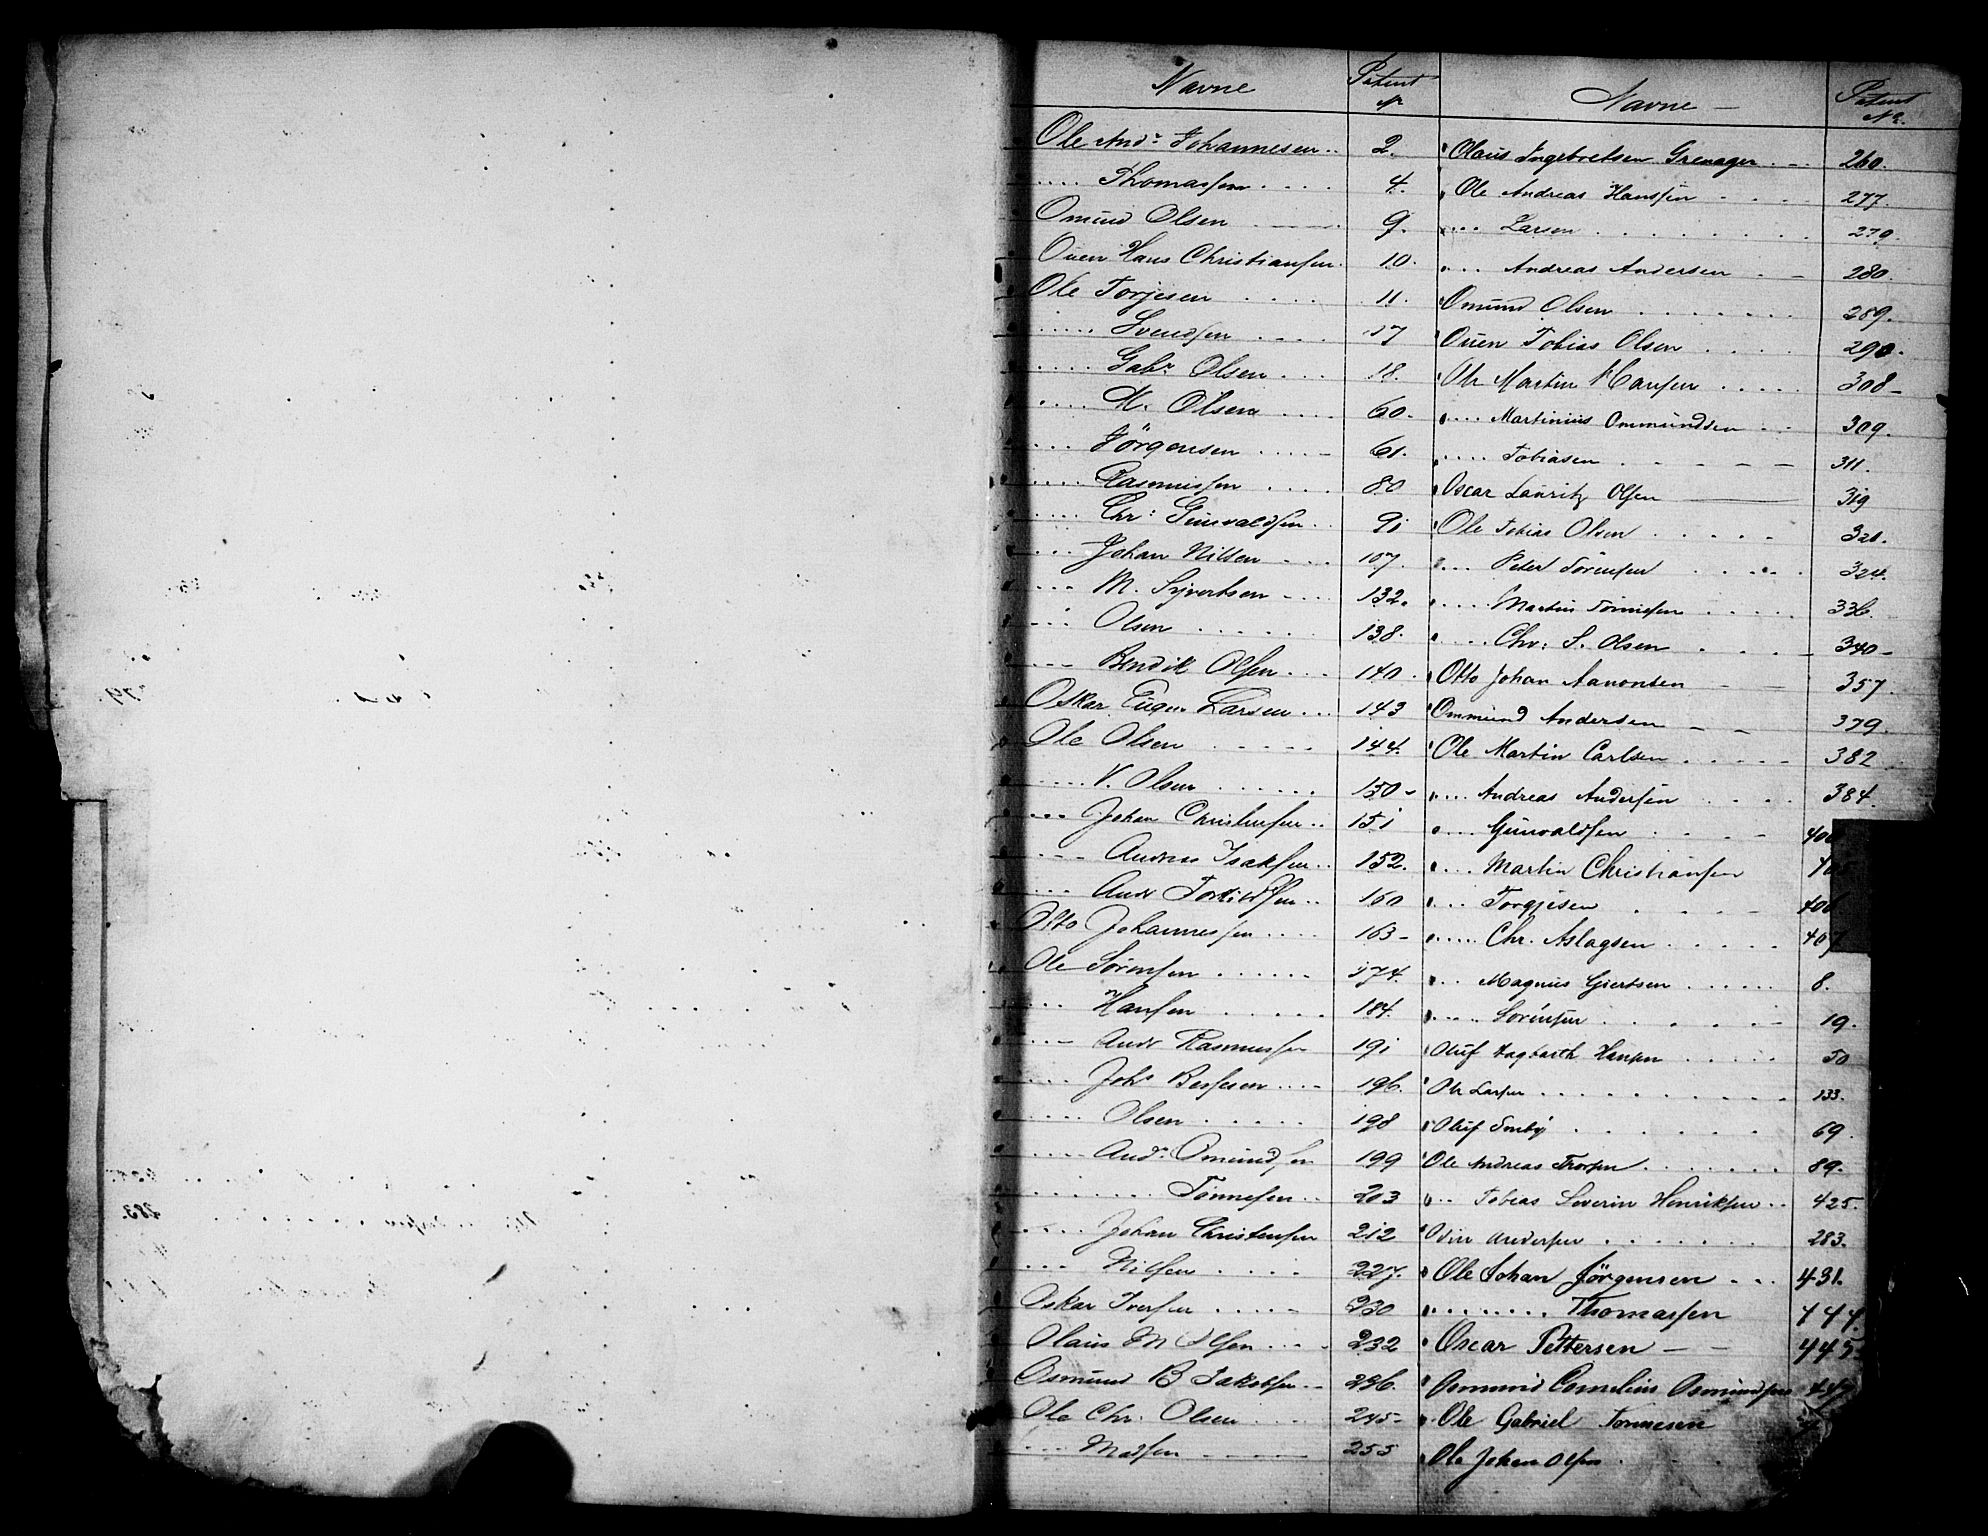 Navne
Patent
No
Ole Andr. Johannesen 2.
.... Thomassen .... 4.
Omund Olsen 9.
Ouen Hans Christiansen. 10.
Ole Torjesen .... 11.
.... Svendsen .... 17
.... Gabr. Olsen ... 18.
.... M. Olsen .... 60.
.... Jörgensen .... 61.
.... Rasmussen .... 80
.... Chr: Gunvaldsen. 91
.... Johan Nilsen ... 107.
... M. Syvertsen .... 132.
... Olsen ...... 138.
.... Bendik Olsen ... 140.
Oskar Eugen Larsen ... 143
Ole Olsen ..... 144.
..... V. Olsen ...... 150-
.... Johan Christensen .. 151
.... Andreas Isaksen .. 152.
.... Andr Torkildsen .. 160
Otto Johannessen .... 163-
Ole Sörensen ...... 174.
.... Hansen ...... 184.
.... Andr Rasmussen 191
.... Johs Bessesen .... 196.
.... Olsen ..... 198
..... Andr. Omundsen 199
........ Tönnesen .. 203
.... Johan Christensen 212
.... Nilsen .... 227.
Oskar Iversen ..... 230
Olaus M Olsen .... 232
Osmund B Jakobsen .. 236.
Ole Chr. Olsen .... 245-
.... Madsen 255
Navne -
Patent
No.
Olaus Ingebretsen Grenager 260.
Ole Andreas Hanssen .... 277.
.... Larsen ........ 279.
.... Andreas Andersen 280.
Omund Olsen ....... 289.
Ouen Tobias Olsen .... 290.
Ole Martin Hansen ..... 308-
.... Martinius Ommundsen 309.
.... Tobiasen 311.
Oscar Lauritz Olsen 319
Ole Tobias Olsen ..... 320.
.... Peter Sörensen ..... 324.
..... Martin Tönnesen ..... 336.
..... Chr: S. Olsen ..... 340-
Otto Johan Aanonsen 357.
Ommund Andersen 379.
Ole Martin Carlsen ..... 382
.... Andreas Andersen .... 384.
.... Gunvaldsen ....
.... Martin Christiansen
.... Torgjesen 406
..... Chr. Aslagsen ..... 407
.... Magnus Gjertsen ...... 8.
..... Sörensen ...... 19.
Oluf Hagbarth Hansen ..... 50
Ole Larsen ......... 133.
Oluf ....... 69.
Ole Andreas Thorsen ....... 89.
.... Tobias Severin Henriksen .. 425.
Odin Andersen ...... 283.
Ole Johan Jörgensen ... 431.
........ Thomassen 444.
Oscar Pettersen - - 445.
Osmund Cornelius Osmundsen 447
Ole Gabriel Tönnesen
Ole Johan Olsen
79.
283.